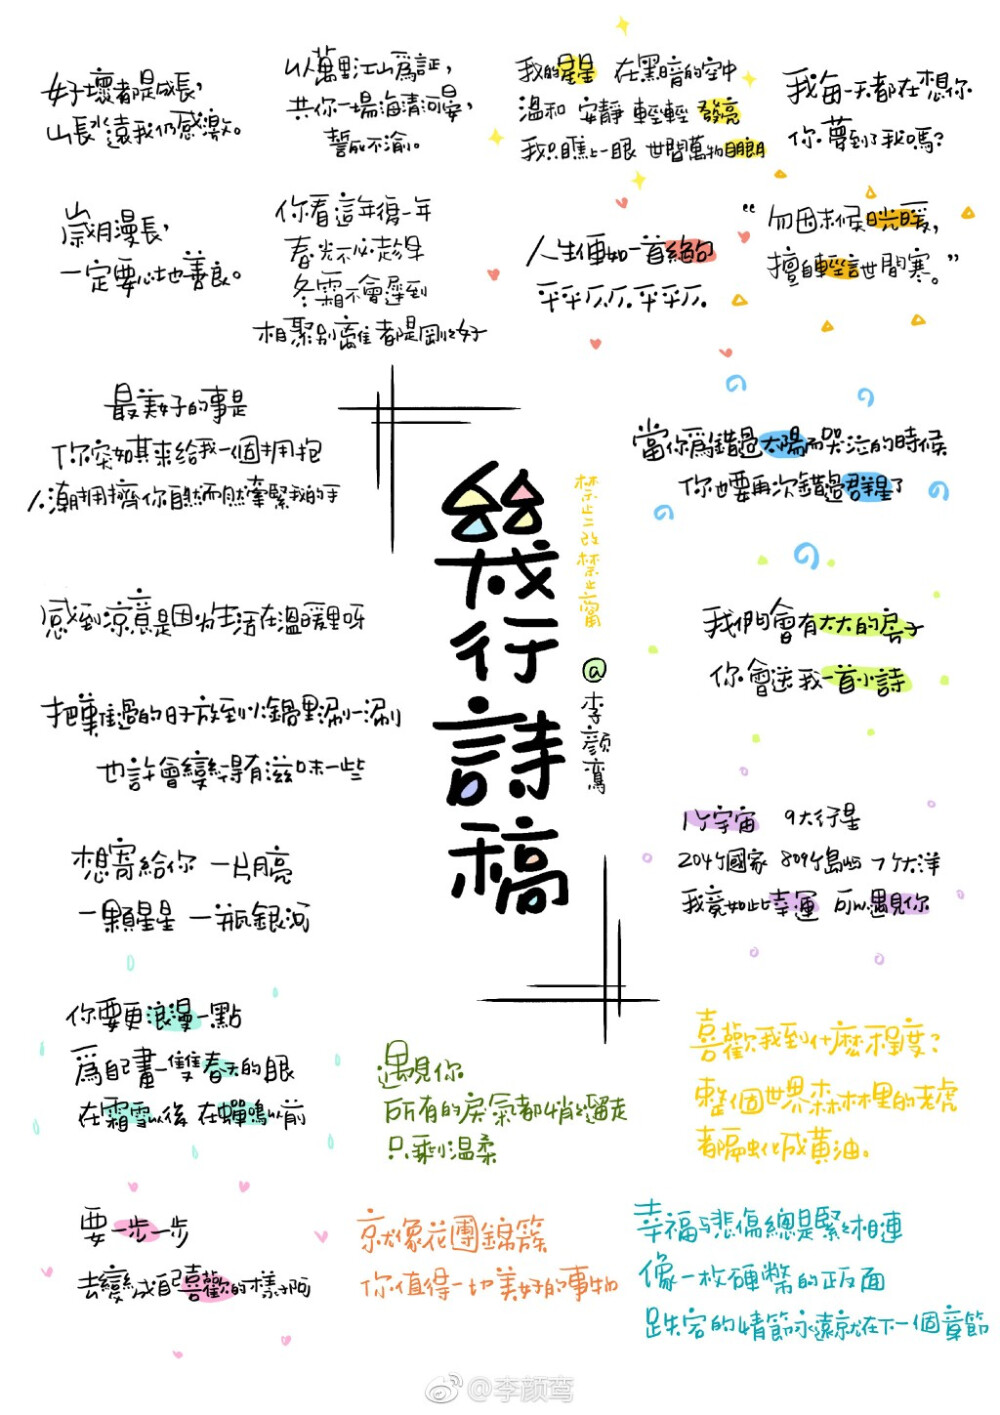 好壞都是成長，
山長水遠我仍感激。
以萬里江山為証，
共你一場海清河晏，
誓成不渝。
我的星星 在黑暗的空中
溫和 安靜 輕輕 發亮
我只瞧上一眼 世間萬物明朗
我每一天都在想你
你夢到了我嗎？
歲月漫長，
一定要心地善良。
你看這年復一年
春光不必趁早
冬霜不會遲到
相聚别離 都是剛剛好
人生便如一首絕句
平平仄仄平平仄
“勿因未候日光暖，
擅自輕言世間寒。”
最美好的事是
你突如其來給我一個擁抱
人潮擁擠你自然而然牽緊我的手
當你為錯過太陽而哭泣的時候
你也要再次錯過群星了
幾行詩稿
禁止二改禁止商
@李顏鸞
感到涼意是因为生活在溫暖里呀
我們會有大大的房子
你會送我一首小詩
把難過的日子放到火鍋里涮一涮
也許會變得有滋味一些
1个宇宙 9大行星
204个國家 809个島屿 7个大洋
我竟如此幸運 可以遇見你
想寄給你 一片月亮
一顆星星 一瓶銀河
你要更浪漫一點
爲自己畫一雙春天的眼
在霜雪以後 在蟬鳴以前
遇見你
所有的戾氣都悄悄溜走
只剩溫柔
喜歡我到什麼程度？
整個世界森林里的老虎
都融化成黃油。
要一步一步
去變成自己喜歡的樣子啊
就像花團錦簇
你值得一切美好的事物
幸福与悲傷總是緊緊相連
像一枚硬幣的正反面
跌宕的情節永遠就在下一個章節
@李颜鸾